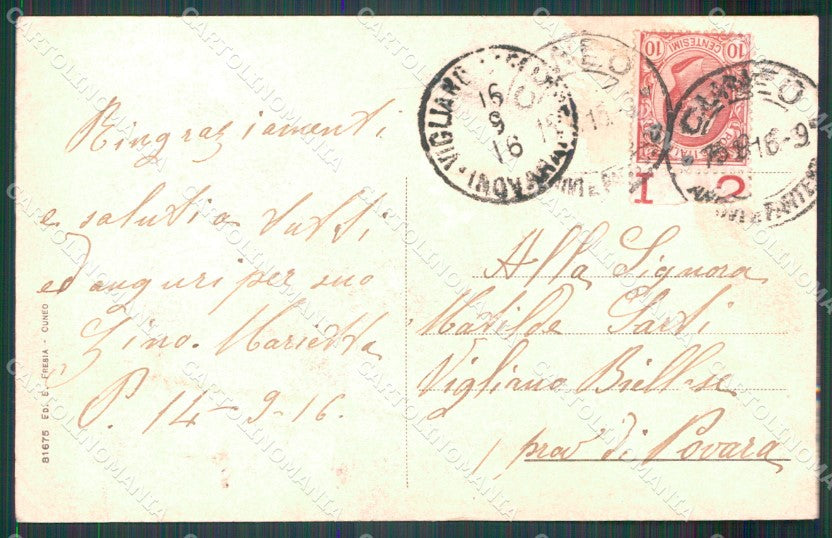 Ringraziamenti
e saluti a tutti
ed auguri per suo
Gino. Marietta
P. 14-9-16.
81675 ED. E. FRESIA - CUNEO
VIGLIANO
16
9
16
CUNEO
10 CENTESIMI 10
CUNEO
16-9
ARRIVI E PARTENZE
I 2
Alla Signora
Matilde Sarti
Vigliano Biellese
prov di Novara
CARTOLINOMANIA